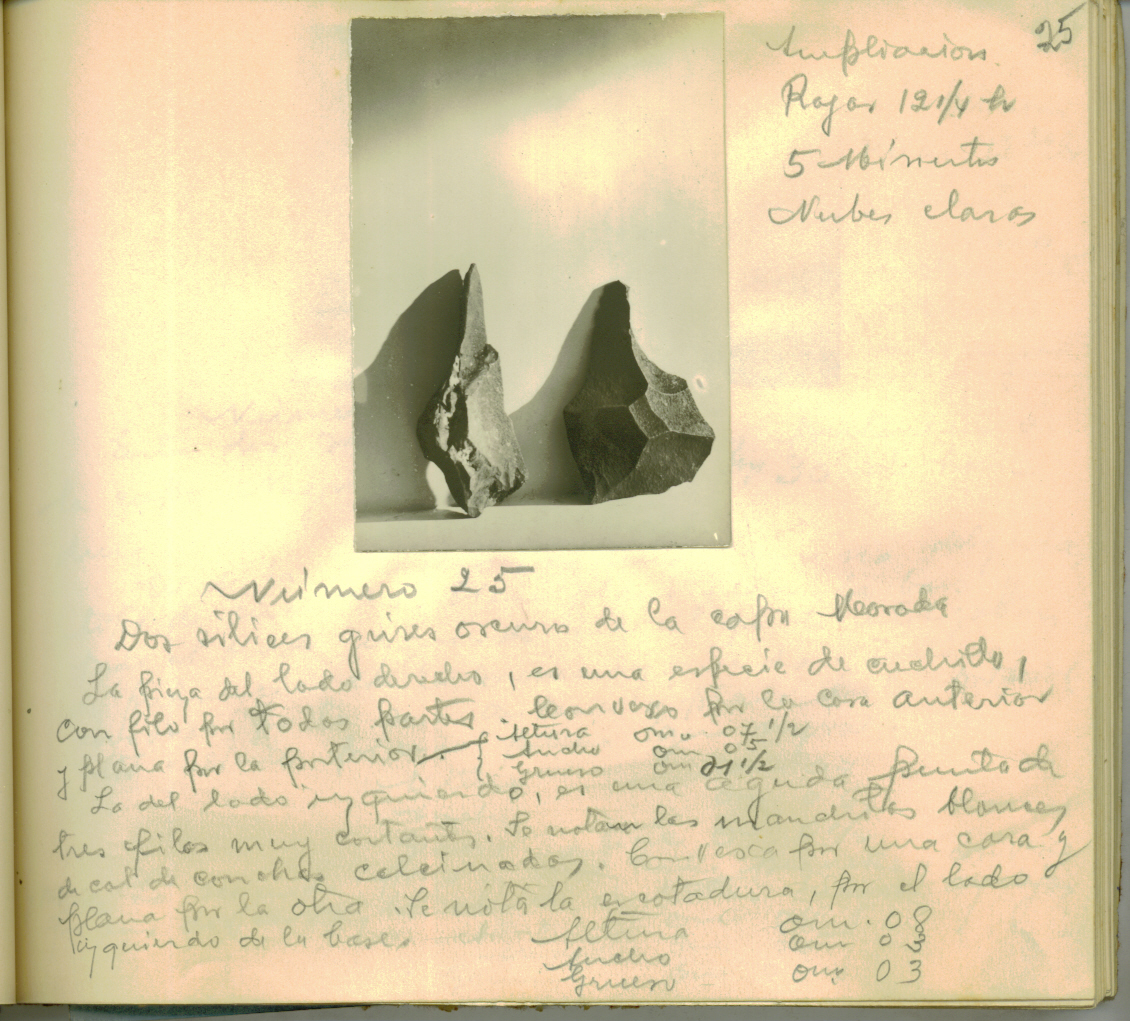 25
Ampliacion.
Rayos 12 1/4 h
5 Minutos
Nubes claras
Número 25
Dos silices grises oscuros de la capa Morada
La pieza del lado derecho, es una especie de cuchillo,
con filo por todas partes. Convexo por la cara anterior
y plana por la posterior.
Altura 0m. 07 1/2
Ancho 0m 05
Grueso 0m 01 1/2
La del lado izquierdo, es una aguda punta de
tres filos muy cortantes. Se notan las manchitas blancas
de cal de conchas calcinadas. Convexa por una cara y
plana por la otra. Se nota la escotadura, por el lado
izquierdo de la base.
Altura 0m. 08
Ancho 0m 0
Grueso 0m. 03